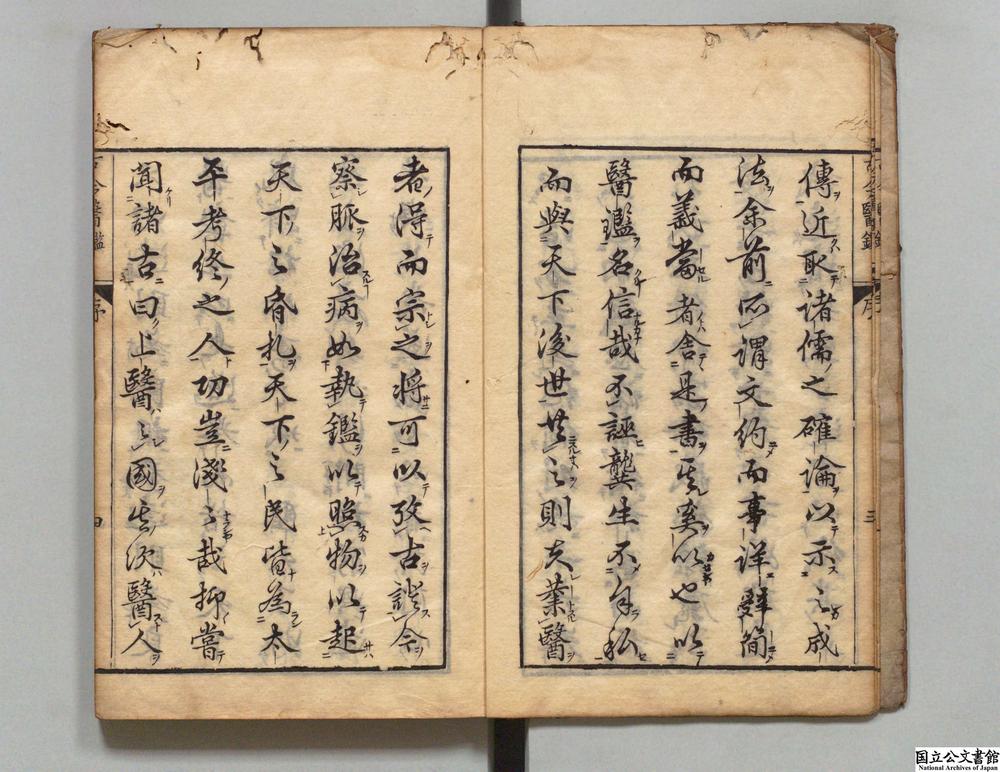 傳近取諸儒之確論以示之成
法余前所謂文約而事詳辭簡
而義當者舍是書其奚以也以
醫鑑名信哉不誣龔生不自私
而與天下後世共之則夫業醫
者得而宗之將可以攷古證今
察脈治病如執鑑以照物以起
天下之昏札天下之民皆為太
平考終之人功豈淺之哉抑嘗
聞諸古曰上醫醫國其次醫人
古今醫鑑
序
三
四
国立公文書館
National Archives of Japan